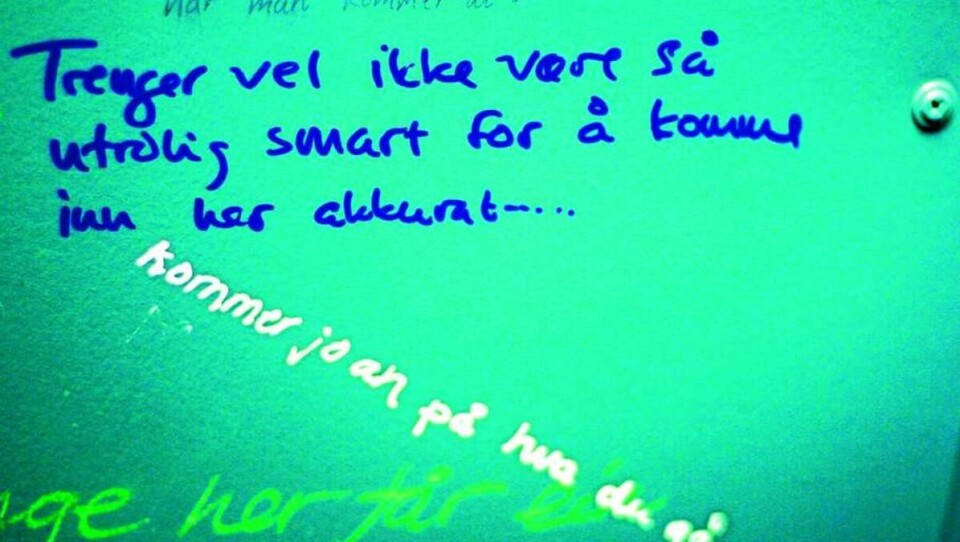 når man kommer
Trenger vel ikke være så
utrolig smart for å komme
inn her akkurat-....
kommer jo an på hva du
her får